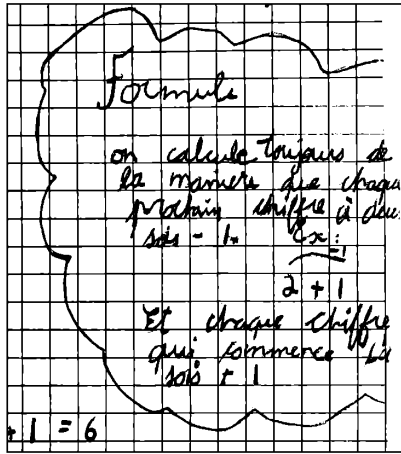 Formule
on calcule toujours de
la maniere que chaque
prochain chiffre à deux
sois - 1. Ex:
-1
2 + 1
Et chaque chiffre
qui commence La
sois + 1
+ 1 = 6